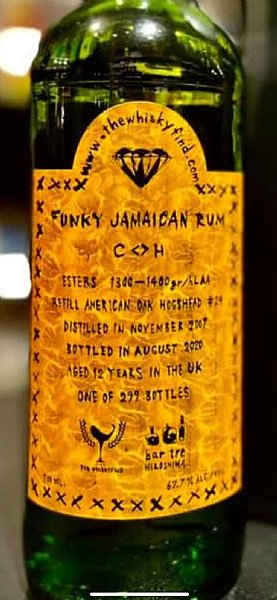 www.thewhiskyfind.com
FUNKY JAMAICAN RUM
C<>H
ESTERS 1300-1400gr/hLAA
REFILL AMERICAN OAK HOGSHEAD #24
DISTILLED IN NOVEMBER 2007
BOTTLED IN AUGUST 2020
AGED 12 YEARS IN THE UK
ONE OF 299 BOTTLES
THE WHISKYFIND
bar tre
HIROSHIMA
67.7% ALC